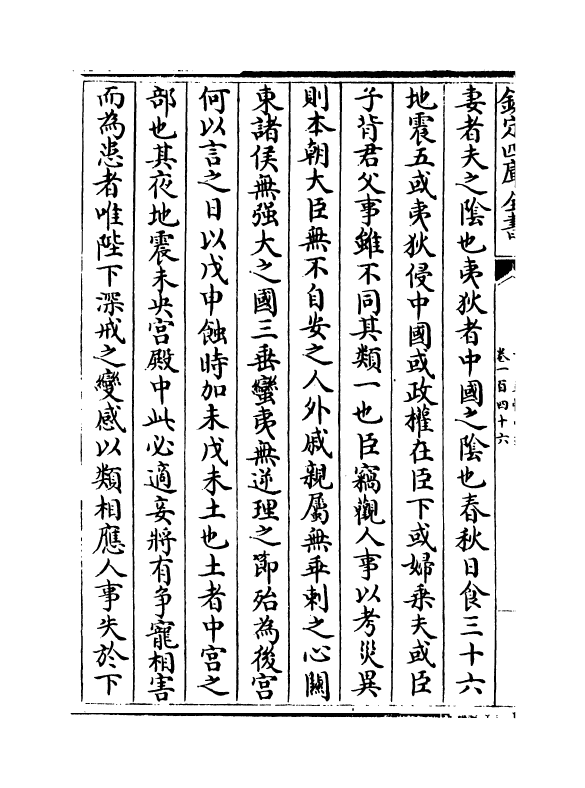 欽定四庫全書
卷一百四十六
妻者夫之陰也夷狄者中國之陰也春秋日食三十六
地震五或夷狄侵中國或政權在臣下或婦乘夫或臣
子背君父事雖不同其類一也臣竊觀人事以考災異
則本朝大臣無不自安之人外戚親屬無乖剌之心關
東諸侯無强大之國三垂蠻夷無逆理之節殆為後宫
何以言之日以戊申蝕時加未戊未土也土者中宫之
部也其夜地震未央宫殿中此必適妾將有争寵相害
而為患者唯陛下深戒之變感以類相應人事失於下